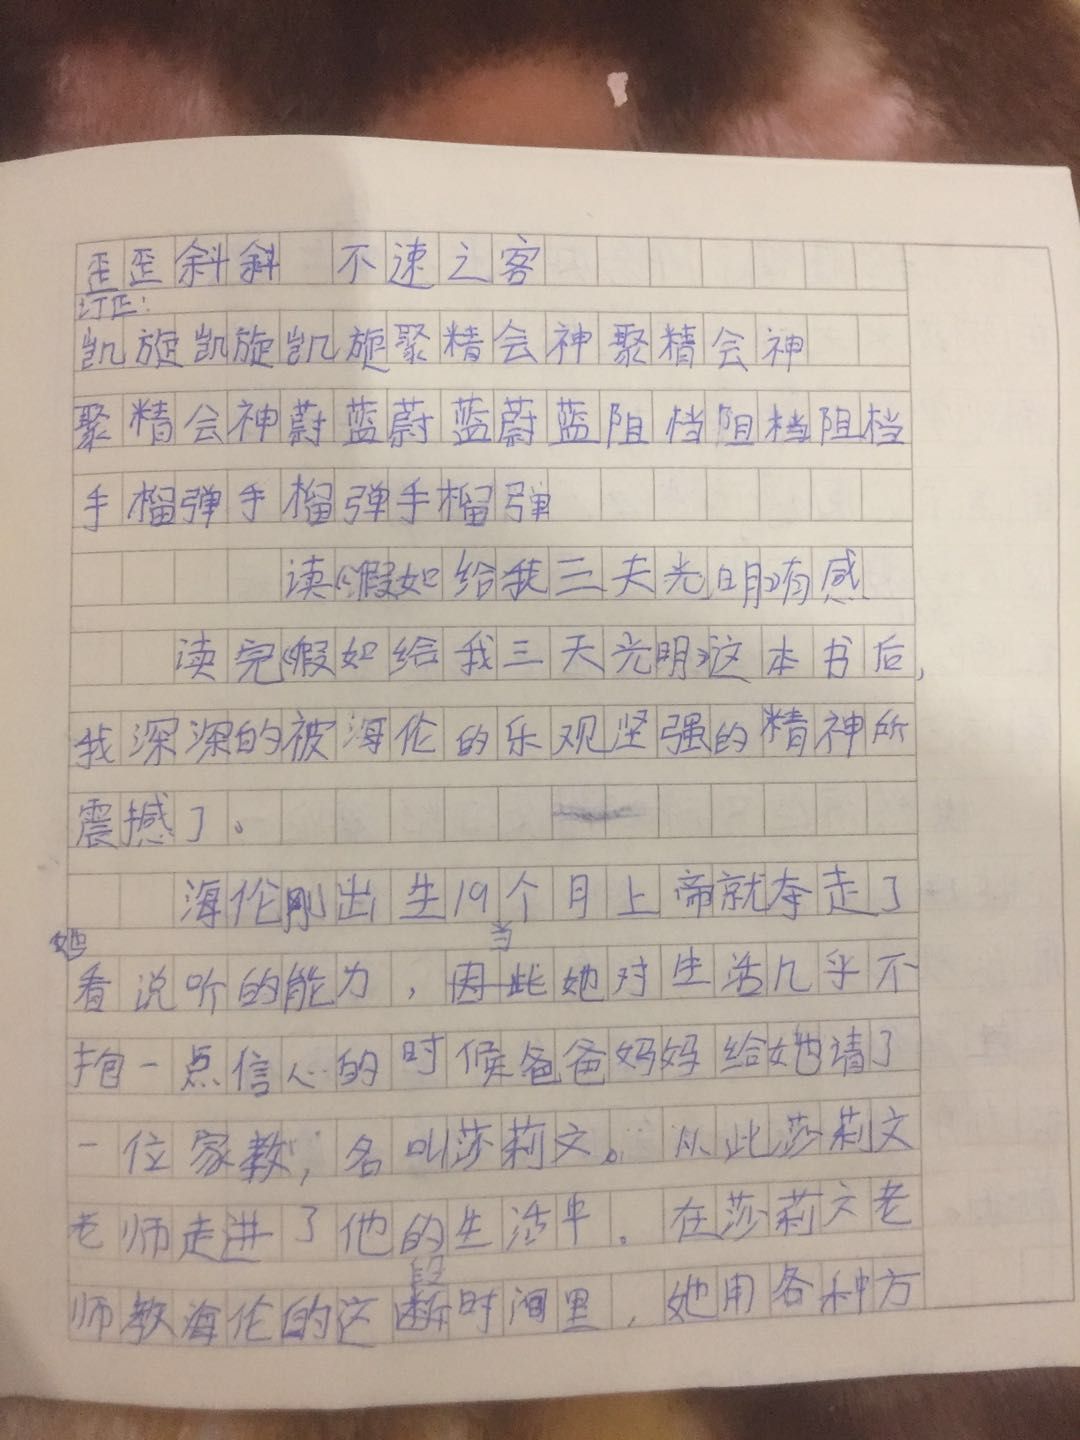 歪歪斜斜 不速之客
订正:
凯旋凯旋凯旋聚精会神聚精会神
聚精会神蔚蓝蔚蓝蔚蓝阻档阻档阻档
手榴弹手榴弹手榴弹
读《假如给我三天光明》有感
读完《假如给我三天光明》这本书后,
我深深的被海伦的乐观坚强的精神所
震撼了。
海伦刚出生19个月上帝就夺走了
她 当
看说听的能力,因此她对生活几乎不
抱一点信心的时候爸爸妈妈给她请了
一位家教,名叫莎莉文。从此莎莉文
老师走进了他的生活中。在莎莉文老
段
师教海伦的这断时间里,她用各种方